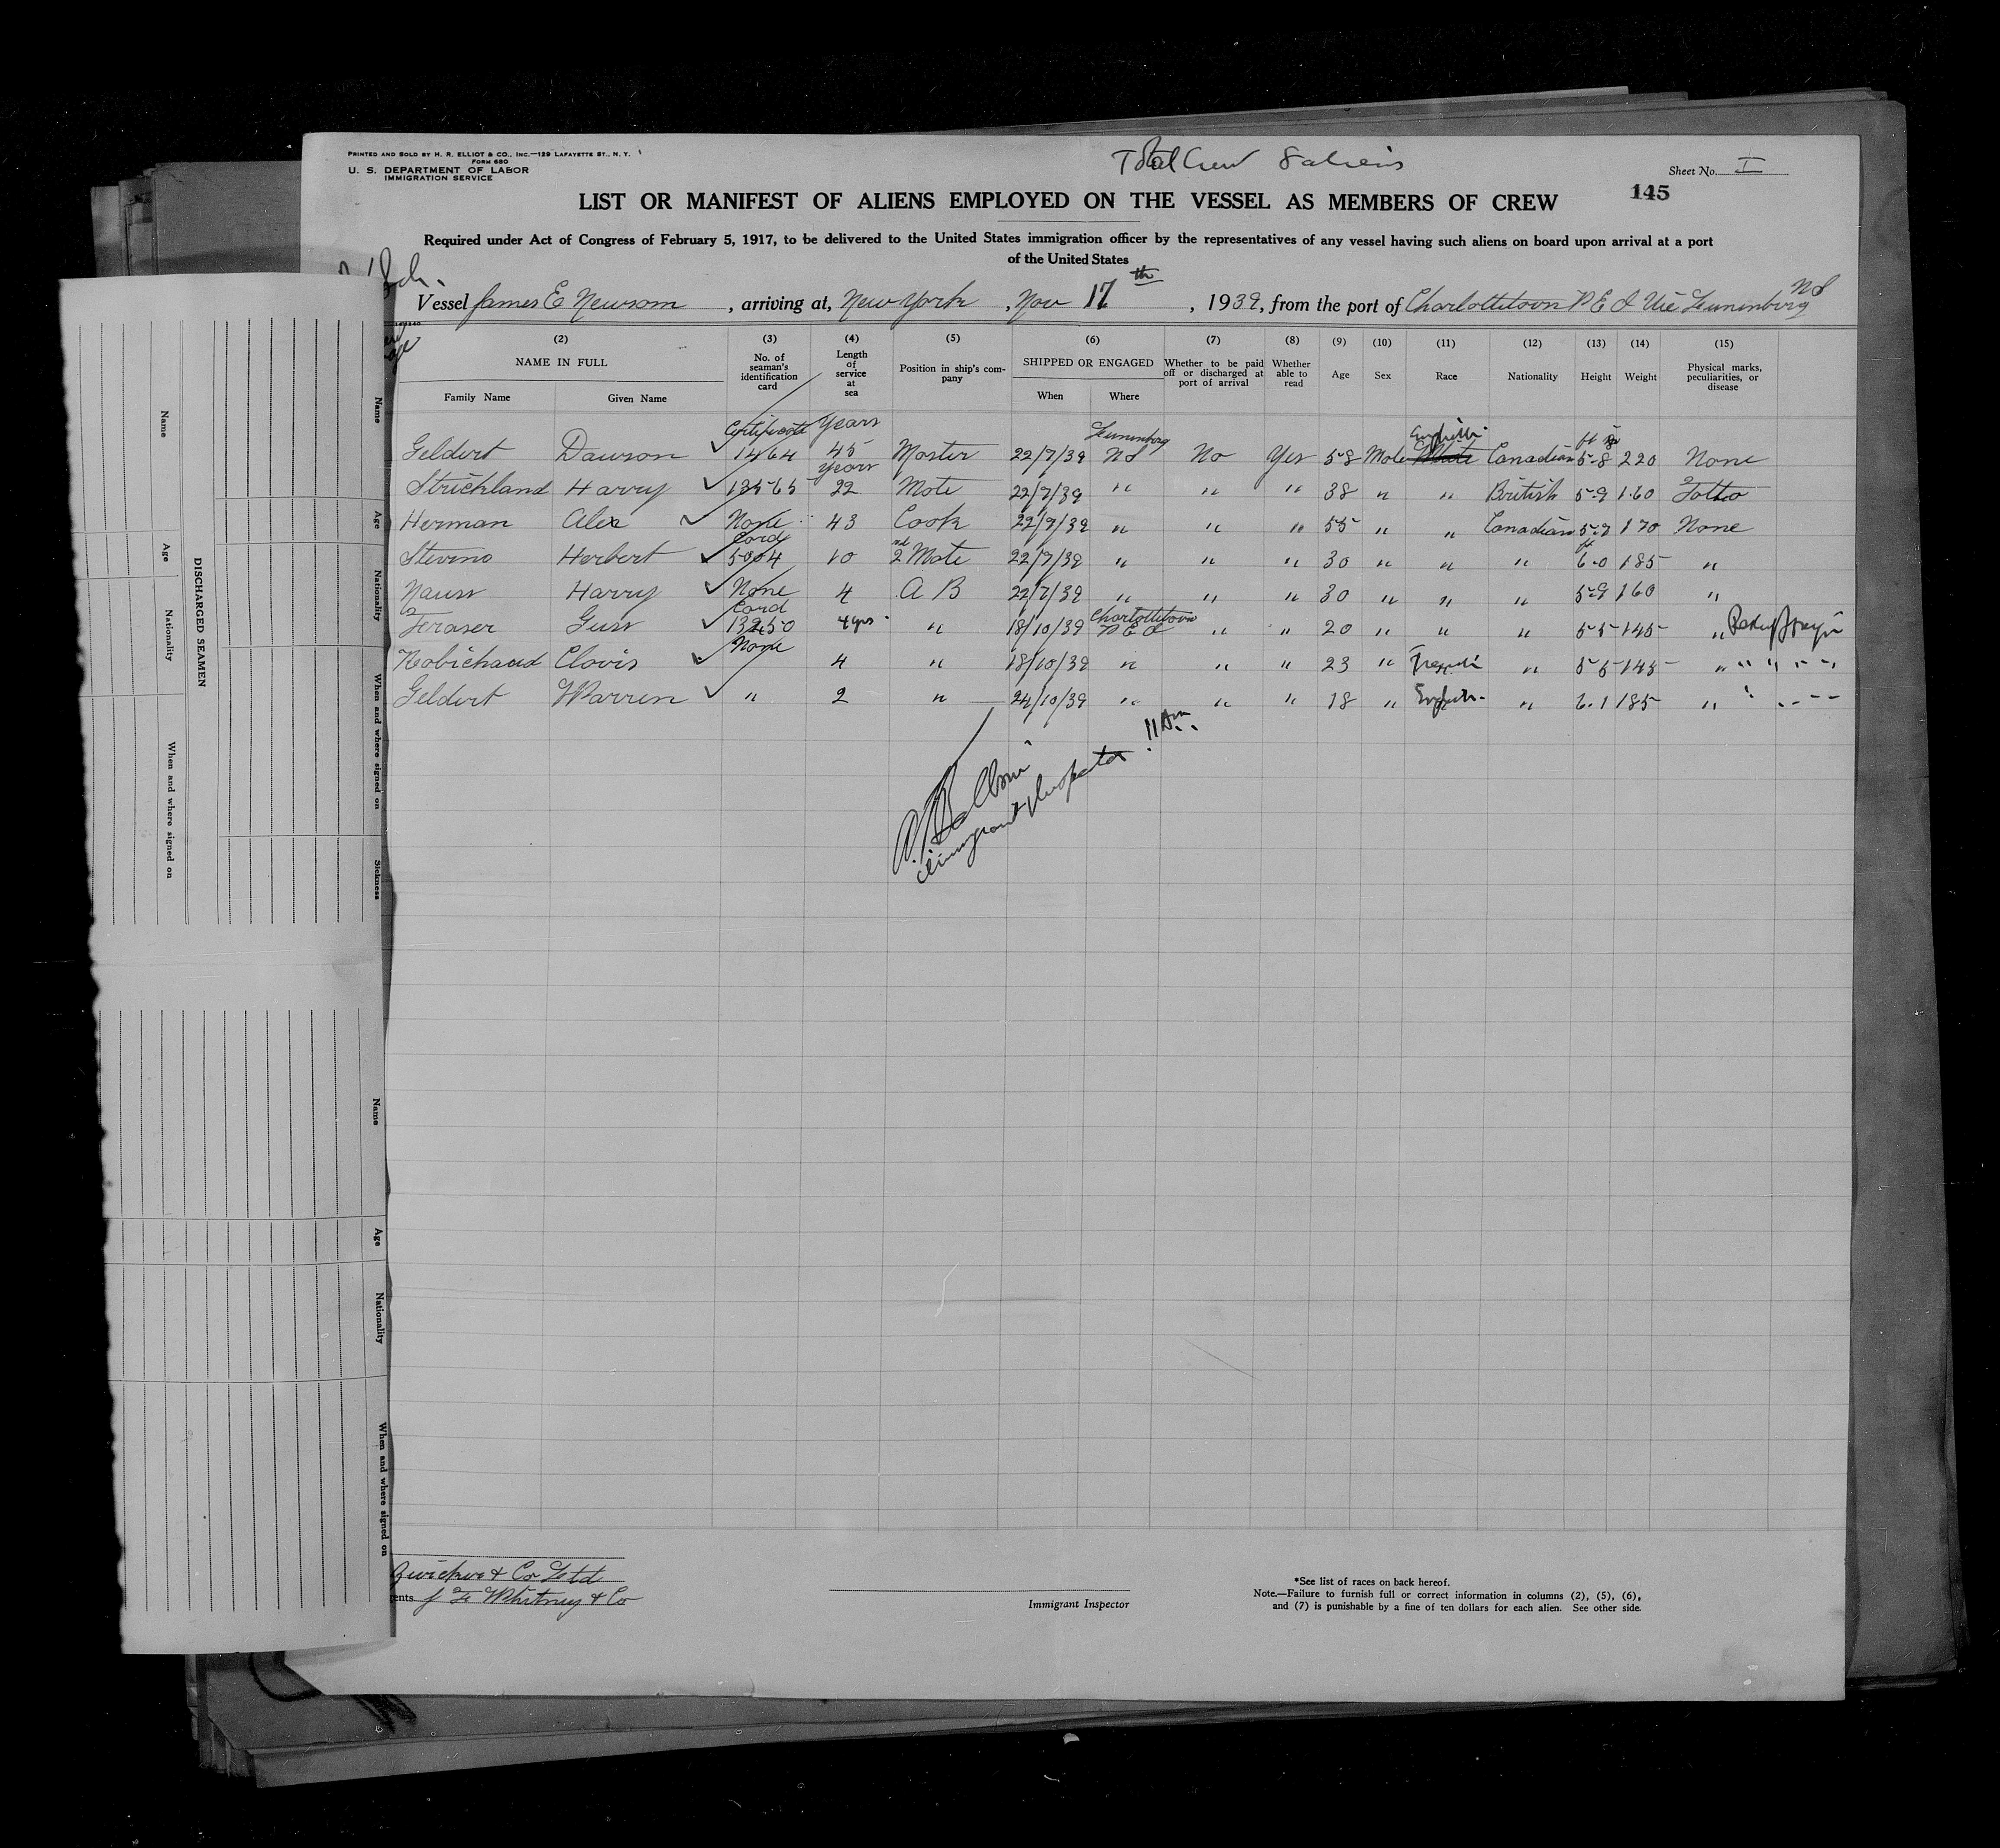 PRINTED AND SOLD BY H. R. ELLIOT & CO., INC.—129 LAFAYETTE ST., N. Y.
FORM 680
U. S. DEPARTMENT OF LABOR
IMMIGRATION SERVICE
Total Crew 8 aliens
Sheet No. I
145
LIST OR MANIFEST OF ALIENS EMPLOYED ON THE VESSEL AS MEMBERS OF CREW
Required under Act of Congress of February 5, 1917, to be delivered to the United States immigration officer by the representatives of any vessel having such aliens on board upon arrival at a port
of the United States
Sch.
Vessel James E Newsom, arriving at, New York, Nov 17th, 1939, from the port of Charlottetown P E I Via Lunenburg NS
(2) (3) (4) (5) (6) (7) (8) (9) (10) (11) (12) (13) (14) (15)
NAME IN FULL No. of seaman's identification card Length of service at sea Position in ship's company SHIPPED OR ENGAGED Whether to be paid off or discharged at port of arrival Whether able to read Age Sex Race Nationality Height Weight Physical marks, peculiarities, or disease
Family Name Given Name When Where
Geldert Dawson Certificate 1464 Years 45 Master 22/7/39 Lunenburg NS No Yes 58 Male English White Canadian ft 5-8 220 None
Strickland Harry 13565 Years 22 Mate 22/7/39 " " " 38 " " British 5-9 160 Tatto
Herman Alex None 43 Cook 22/7/39 " " " 55 " " Canadian 5-7 170 None
Stevino Herbert Card 5004 10 2nd Mate 22/7/39 " " " 30 " " " ft 6-0 185 "
Nauss Harry None 4 A B 22/7/39 " " " 30 " " " 5-9 160 "
Fraser Guss Card 13250 4 yrs " 18/10/39 Charlottetown P E I " " 20 " " " 5-5 145 "
Robichaud Clovis None 4 " 18/10/39 " " " 23 " French " 5-5 145 " " " " "
Geldert Warren " 2 " 24/10/39 " " " 18 " English " 6.1 185 "
11 Am
Immigrant Inspector
Zwicker & Co Ltd
ents J F Whitney & Co
Immigrant Inspector
*See list of races on back hereof.
Note.—Failure to furnish full or correct information in columns (2), (5), (6),
and (7) is punishable by a fine of ten dollars for each alien. See other side.
DISCHARGED SEAMEN
Name Age Nationality When and where signed on
Name Age Nationality When and where signed on Sickness
Name Age Nationality When and where signed on